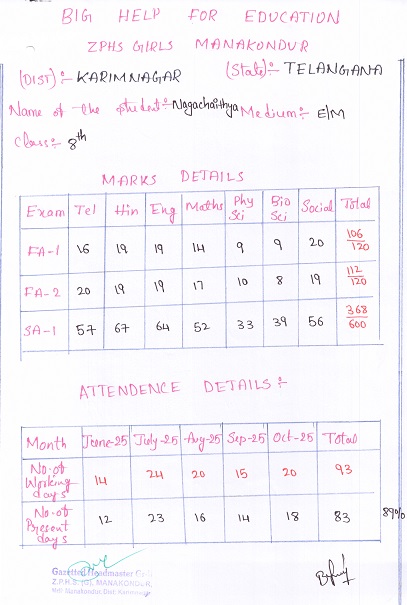 BIG HELP FOR EDUCATION
ZPHS GIRLS MANAKONDUR
(DIST):- KARIMNAGAR (State):- TELANGANA
Name of the student:- Nagachaithya Medium:- E/M
Class:- 8th
MARKS DETAILS
Exam Tel Hin Eng Maths Phy Sci Bio Sci Social Total
FA-1 16 19 19 14 9 9 20 106/120
FA-2 20 19 19 17 10 8 19 112/120
SA-1 57 67 64 52 33 39 56 368/600
ATTENDENCE DETAILS:-
Month June-25 July-25 Aug-25 Sep-25 Oct-25 Total
No. of Working days 14 24 20 15 20 93
No. of Present days 12 23 16 14 18 83 89%
Gazetted Headmaster
Z.P.H.S. (G), MANAKONDUR,
Mdl Manakondur, Dist. Karimnagar